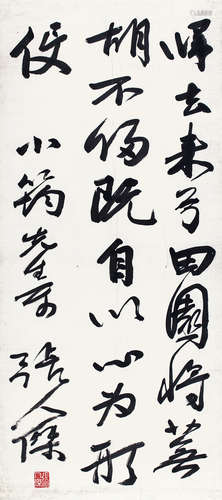 归去来兮田園将蕪
胡不归既自以心为形
役
小筠先生方
張人傑